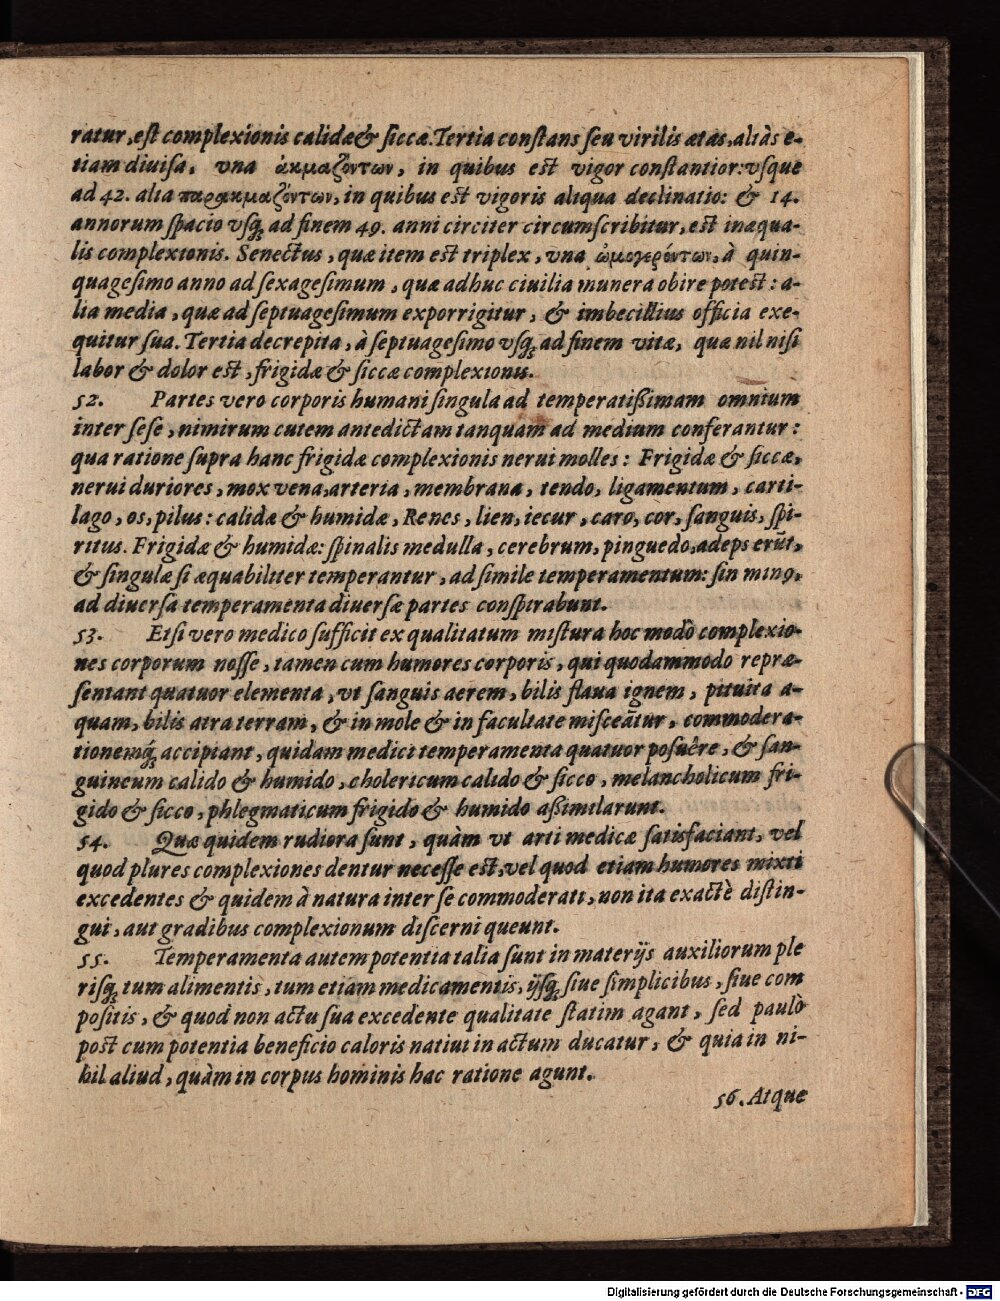 ratur, eſt complexionis calidæ & ſiccæ. Tertia conſtans ſeu virilis ætas, aliàs e-
tiam diuiſa, vna ἀκμαζόντων, in quibus est vigor conſtantior: vſque
ad 42. alia παρακμαζόντων, in quibus est vigoris aliqua declinatio: & 14.
annorum ſpacio vſq; ad finem 49. anni circiter circumſcribitur, est inæqua-
lis complexionis. Senectus, quæ item est triplex, vna ὠμογερόντων, à quin-
quageſimo anno ad ſexageſimum, quæ adhuc ciuilia munera obire potest: a-
lia media, quæ ad ſeptuageſimum exporrigitur, & imbecillius officia exe-
quitur ſua. Tertia decrepita, à ſeptuageſimo vſq; ad finem vitæ, quæ nil niſi
labor & dolor est, frigidæ & ſiccæ complexionis.
52. Partes vero corporis humani ſingula ad temperatißimam omnium
inter ſeſe, nimirum cutem antedictam tanquam ad medium conferantur:
qua ratione ſupra hanc frigidæ complexionis nerui molles: Frigidæ & ſiccæ,
nerui duriores, mox vena, arteria, membrana, tendo, ligamentum, carti-
lago, os, pilus: calidæ & humidæ, Renes, lien, iecur, caro, cor, ſanguis, ſpi-
ritus. Frigidæ & humidæ: ſpinalis medulla, cerebrum, pinguedo, adeps erūt,
& ſingulæ ſi æquabiliter temperantur, ad ſimile temperamentum: ſin min9,
ad diuerſa temperamenta diuerſæ partes conſpirabunt.
53. Etſi vero medico ſufficit ex qualitatum miſtura hoc modo complexio-
nes corporum noſſe, tamen cum humores corporis, qui quodammodo repræ-
ſentant quatuor elementa, vt ſanguis aerem, bilis flaua ignem, pituita a-
quam, bilis atra terram, & in mole & in facultate miſceātur, commodera-
tionemq́; accipiant, quidam medici temperamenta quatuor poſuêre, & ſan-
guineum calido & humido, cholericum calido & ſicco, melancholicum fri-
gido & ſicco, phlegmaticum frigido & humido aßimilarunt.
54. Quæ quidem rudiora ſunt, quàm vt arti medicæ ſatisfaciant, vel
quod plures complexiones dentur neceſſe est, vel quod etiam humores mixti
excedentes & quidem à natura inter ſe commoderati, non ita exactè diſtin-
gui, aut gradibus complexionum diſcerni queunt.
55. Temperamenta autem potentia talia ſunt in materijs auxiliorum ple
riſq; tum alimentis, tum etiam medicamentis, ijſq; ſiue ſimplicibus, ſiue com
poſitis, & quod non actu ſua excedente qualitate ſtatim agant, ſed paulò
post cum potentia beneficio caloris natiui in actum ducatur, & quia in ni-
hil aliud, quàm in corpus hominis hac ratione agunt.
56. Atque
Digitalisierung gefördert durch die Deutsche Forschungsgemeinschaft - DFG